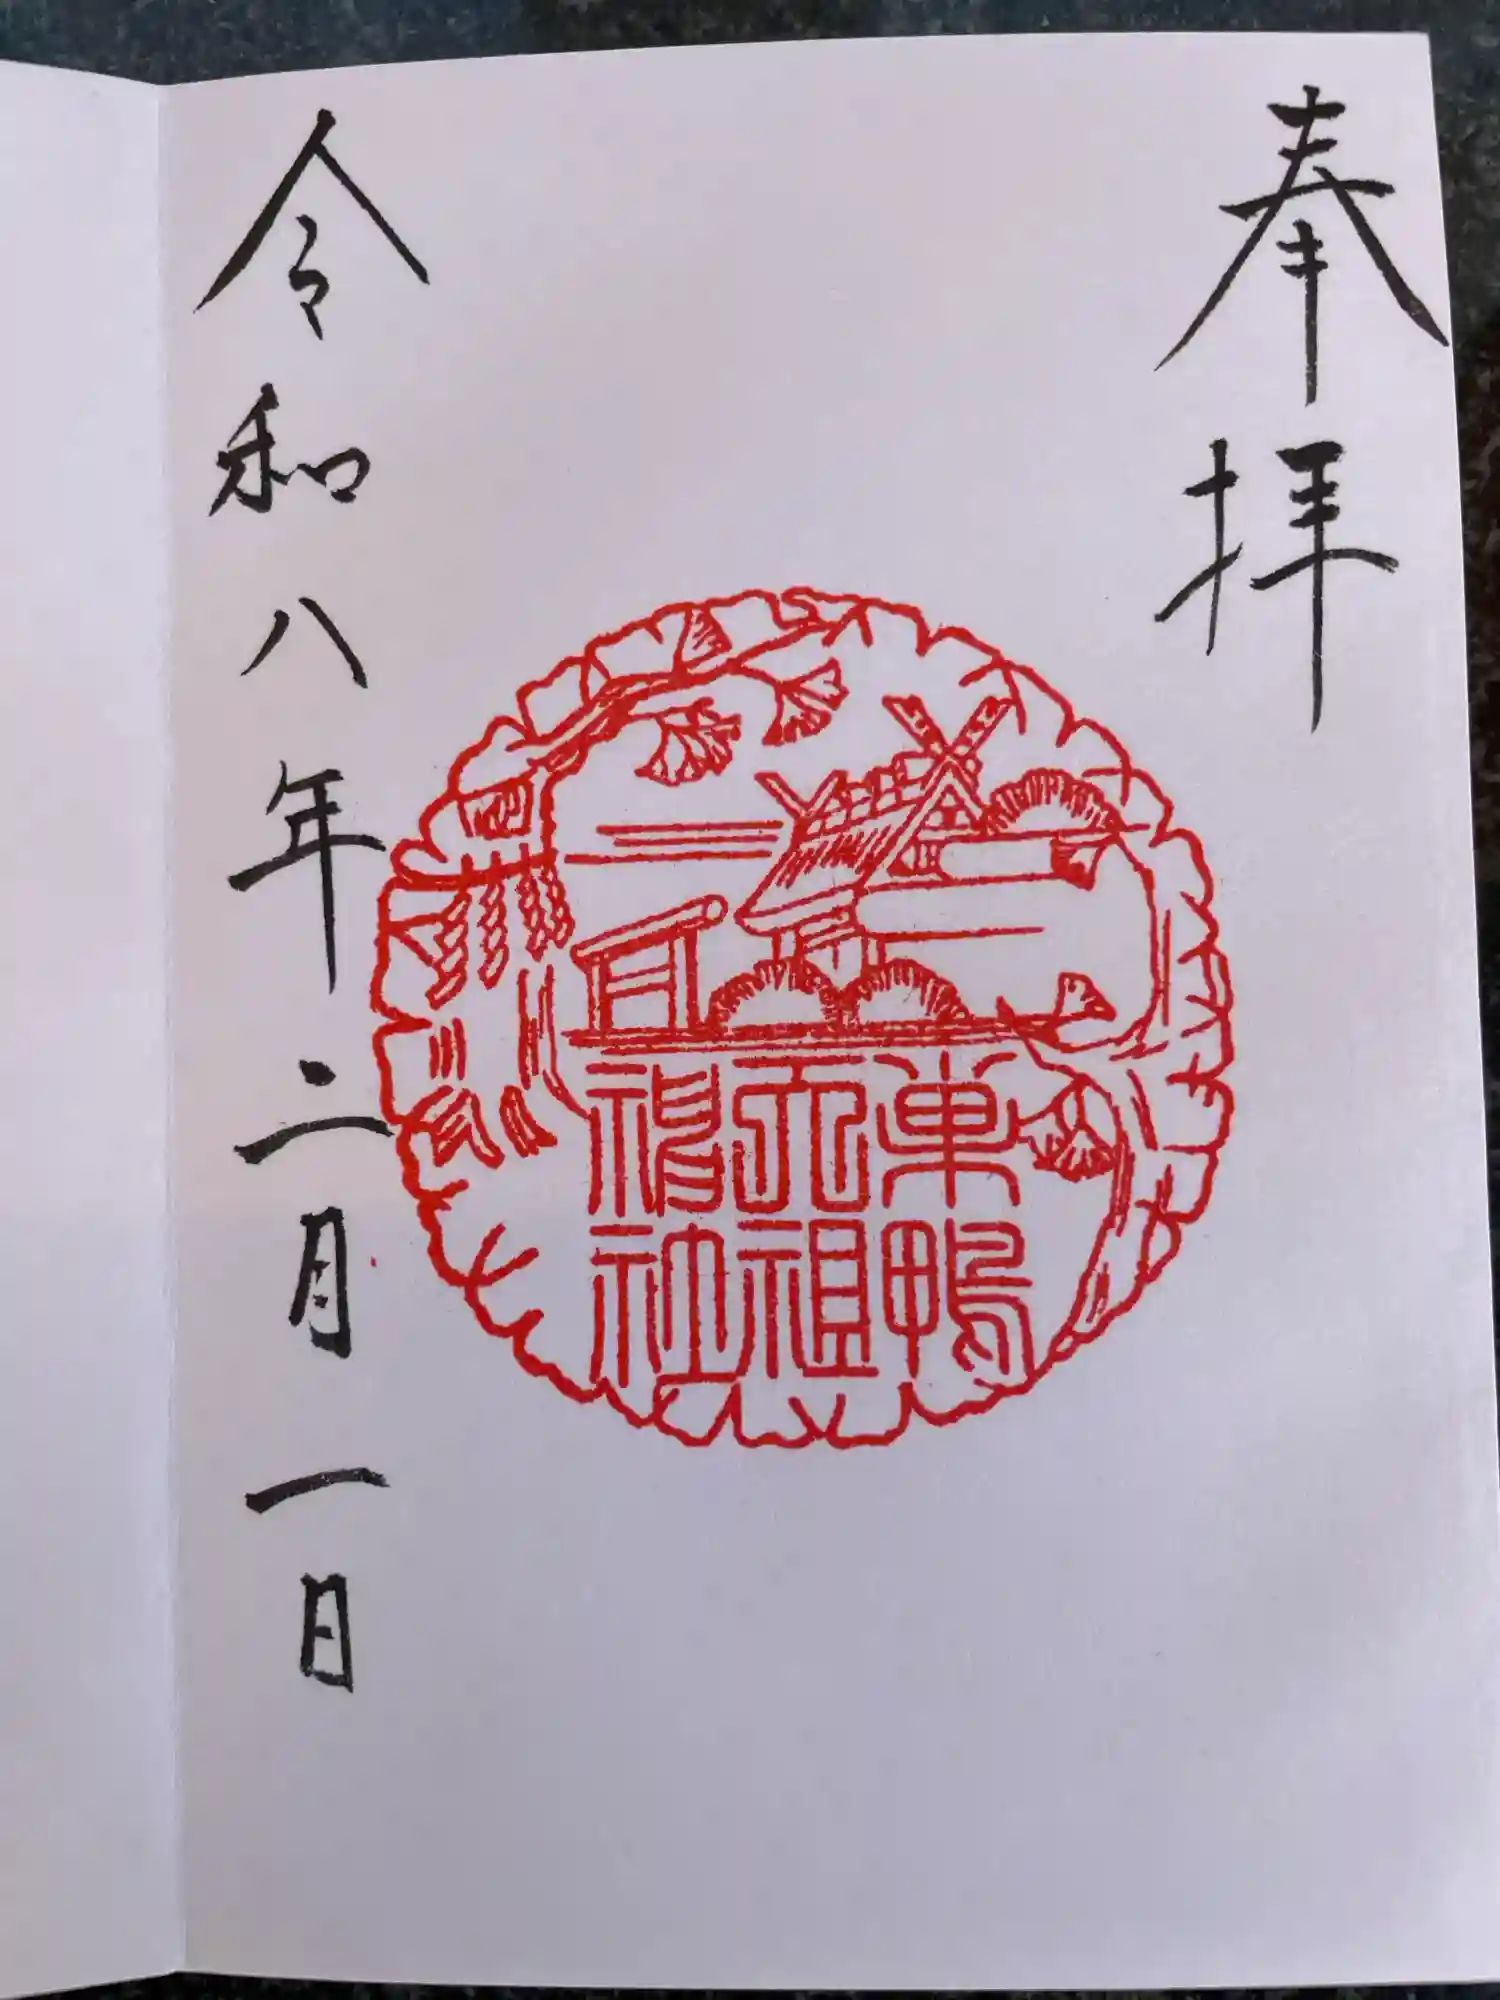 奉拝
巣鴨
天祖
神社
令和八年二月一日